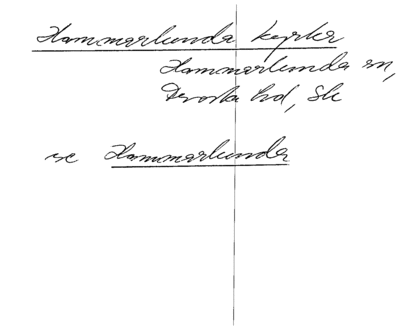 Hammarlunda kyrka
Hammarlunda sn,
Frosta hd, Sk
se Hammarlunda